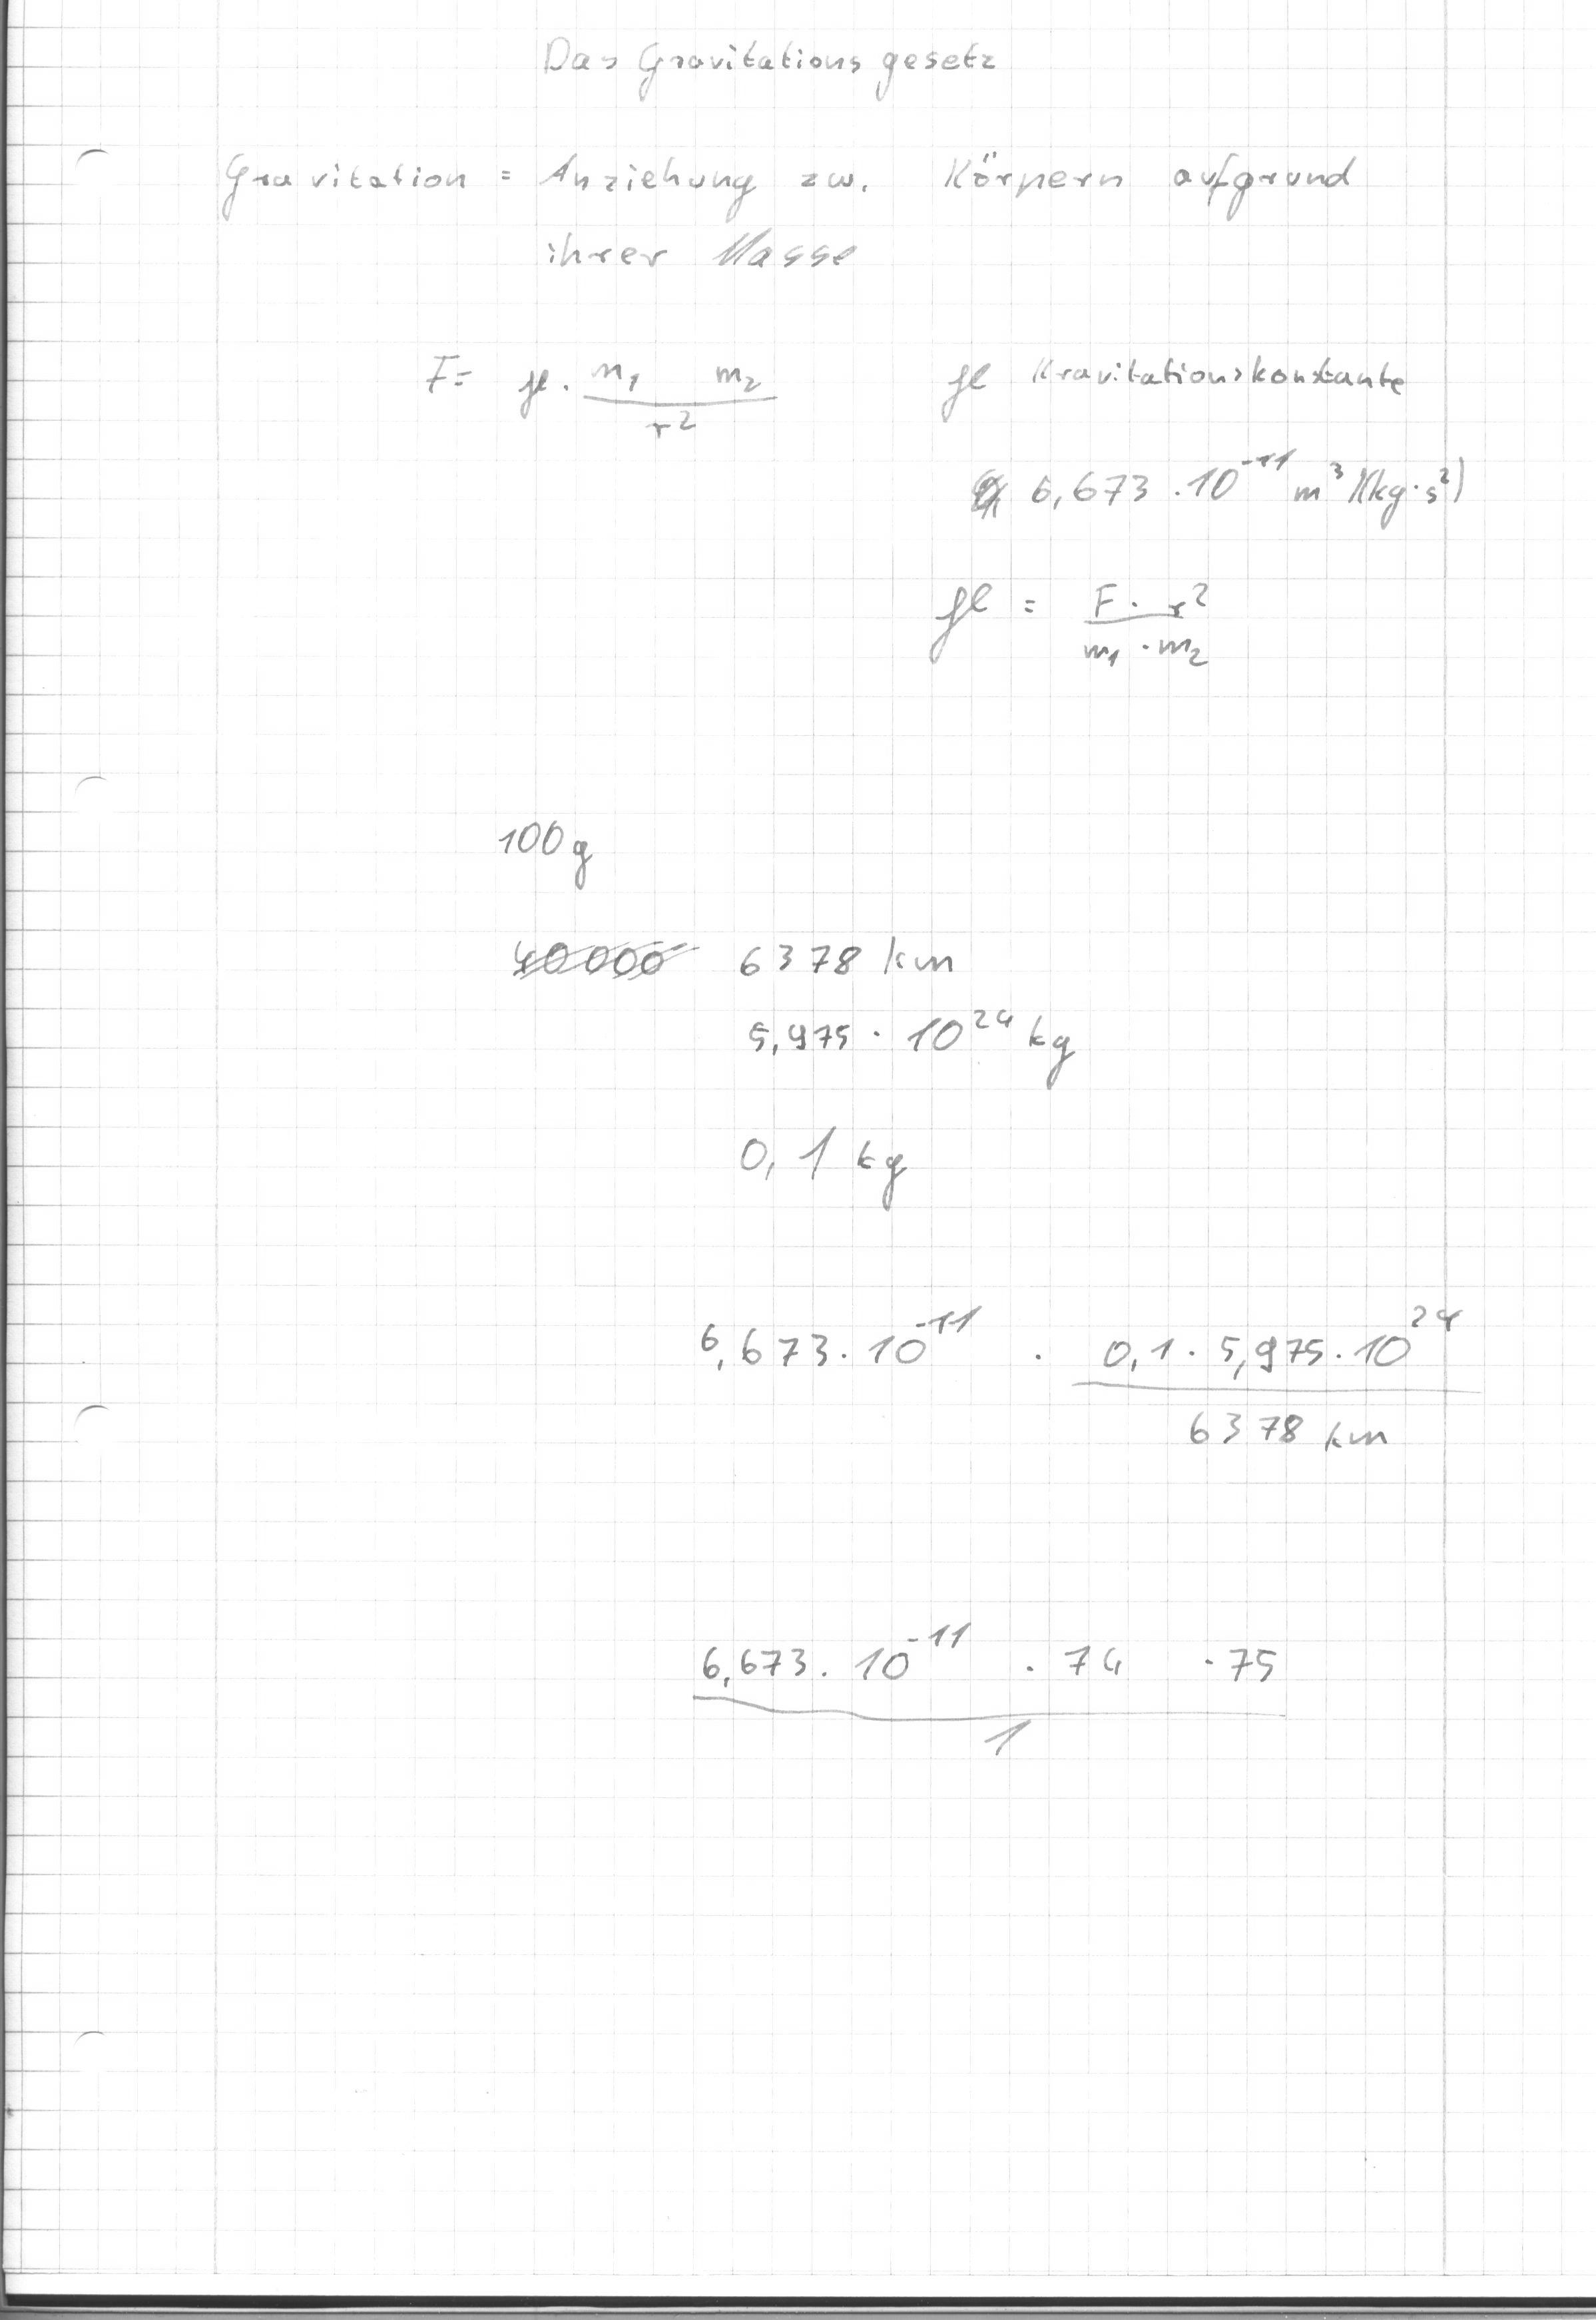 Das Gravitationsgesetz
Gravitation = Anziehung zw. Körpern aufgrund
ihrer Masse
F= γ · m₁ m₂ / r²
γ Kravitationskonstante
6,673 · 10⁻¹¹ m³/(kg·s²)
γ = F · r² / m₁ · m₂
100g
40000 6378 km
5,975 · 10²⁴ kg
0,1 kg
6,673 · 10⁻¹¹ · 0,1 · 5,975 · 10²⁴ / 6378 km
6,673 · 10⁻¹¹ · 74 · 75 / 1